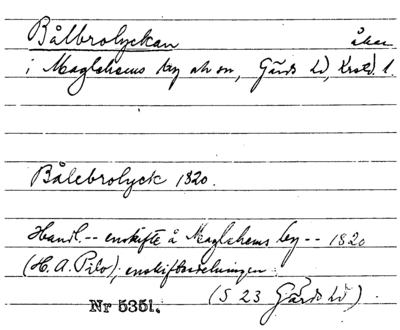 Bålbrolyckan åker
i Maglehems by o sn, Gärds hd, Krstd. l.
Bålebrolyck 1820.
Handl. -- enskifte å Maglehems by -- 1820
(H. A. Pilo), enskiftesdelningen.
(S 23 Gärds hd).
Nr 5351.